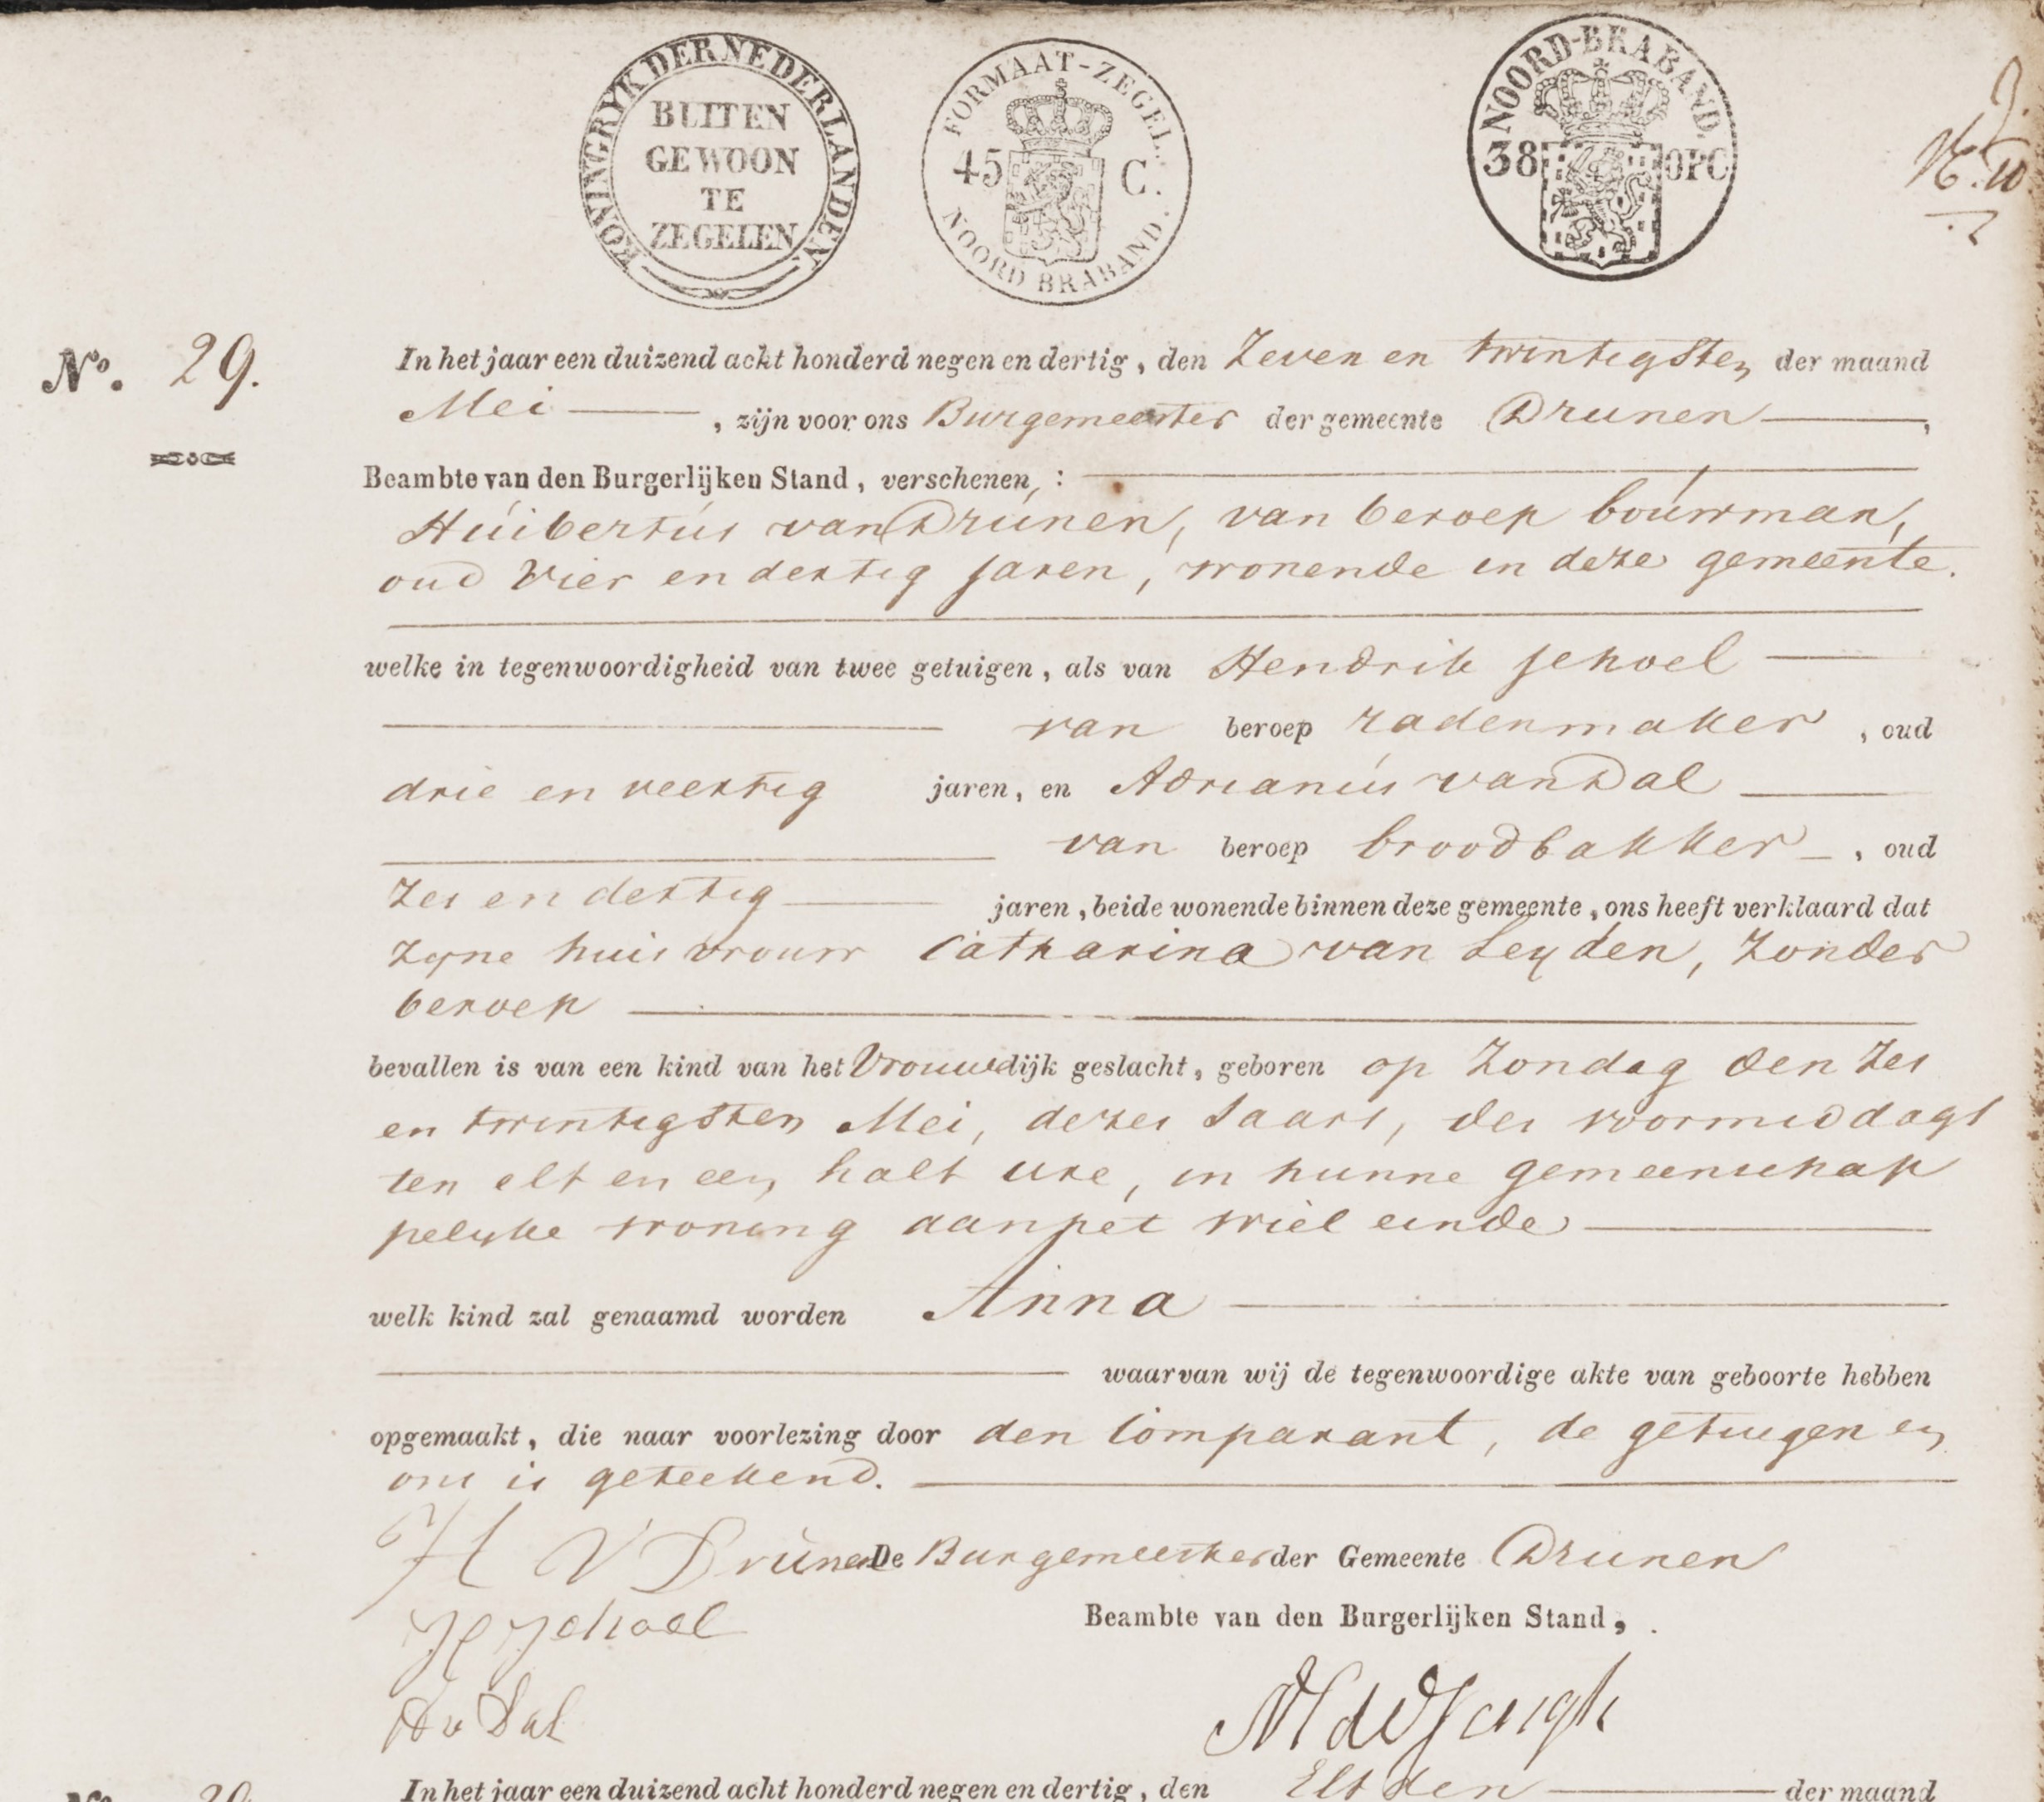 KONINGRYK DER NEDERLANDEN.
BUITEN
GEWOON
TE
ZEGELEN
FORMAAT-ZEGEL.
45 C.
NOORD BRABAND.
NOORD-BRABAND.
38 OPC
No. 29.
In het jaar een duizend acht honderd negen en dertig, den Zeven en twintigsten der maand
Mei, zijn voor ons Burgemeester der gemeente Drunen,
Beambte van den Burgerlijken Stand, verschenen, :
Huibertus van Drunen, van beroep bouwman,
oud Vier en dertig jaren, wonende in deze gemeente.
welke in tegenwoordigheid van twee getuigen, als van Hendrik Schoel
van beroep radenmaker, oud
drie en veertig jaren, en Adrianus van Dal
van beroep broodbakker, oud
Zes en dertig jaren, beide wonende binnen deze gemeente, ons heeft verklaard dat
Zyne huisvrouw Catharina van Leyden, Zonder
beroep
bevallen is van een kind van het Vrouwelijk geslacht, geboren op Zondag den Zes
en twintigsten Mei, dezes Jaars, des voormiddags
ten elf en een half ure, in hunne gemeenschap
pelyke woning aan het wiel einde
welk kind zal genaamd worden Anna
waarvan wij de tegenwoordige akte van geboorte hebben
opgemaakt, die naar voorlezing door den Comparant, de getuigen en
ons is geteekend.
H V Drünen De Burgemeester der Gemeente Drunen
H Schoel Beambte van den Burgerlijken Stand,
A v Dal
In het jaar een duizend acht honderd negen en dertig, den Elfden der maand